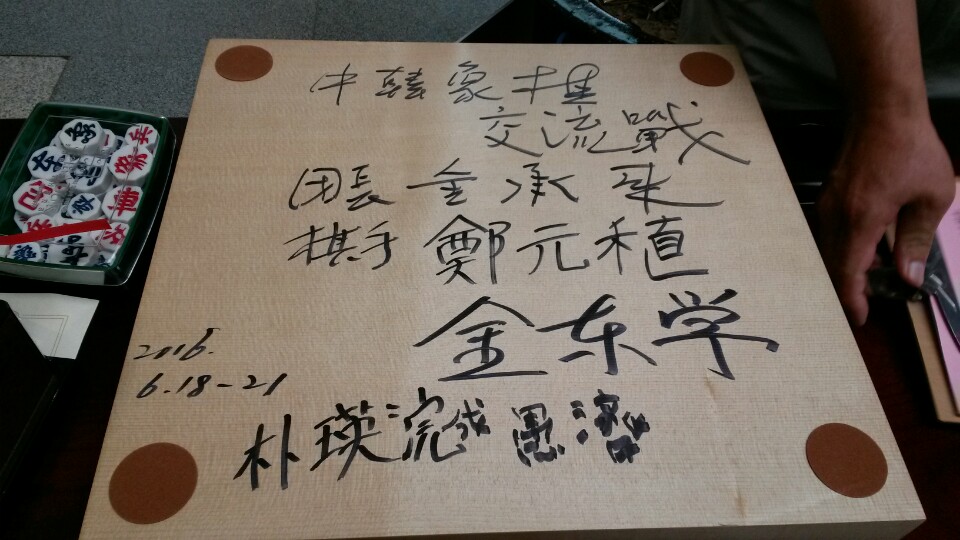 中韓象棋
交流戰
团長 金承來
棋手 鄭元植
金东学
2016.
6.18-21
朴瑛浣